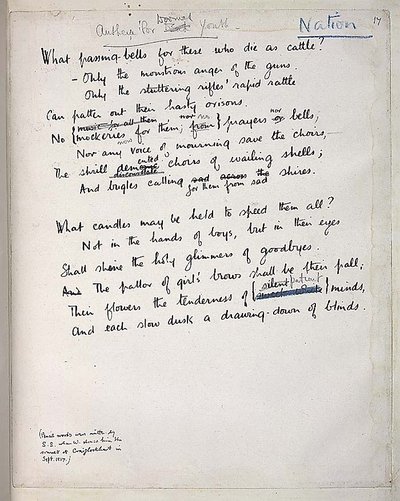 Doomed
Anthem For Dead Youth
Nation
17
What passing-bells for these who die as cattle?
- Only the monstrous anger of the guns.
Only the stuttering rifles' rapid rattle
Can patter out their hasty orisons.
music for all them nor
No { mockeries for them; from } prayers or bells,
Nor any voice of mourning save the choirs,
ented
The shrill demented choirs of wailing shells;
disconsolate
And bugles calling sad across the shires.
for them from sad
What candles may be held to speed them all?
Not in the hands of boys, but in their eyes
Shall shine the holy glimmers of goodbyes.
And The pallor of girls' brows shall be their pall;
silent patient
Their flowers the tenderness of { sweet white } minds,
And each slow dusk a drawing-down of blinds.
(Pencil words were written by
S.S. when W. showed him the
sonnet at Craiglockhart in
Sept. 1917.)